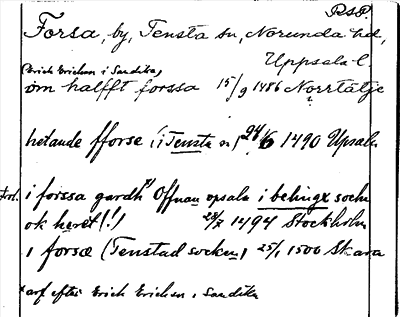 RSP.
Forsa, by, Tensta sn, Norunda hd,
Uppsala l.
(Erich Erichson i Sandika)
om halfft forssa 15/9 1486 Norrtälje
hetande fforse (i Tensta sn) 24/6 1490 Upsala
i forssa gardh Offnan opsala i belingx sochn
ok heret (!) 28/7 1494 Stockholm
i forsæ (Tenstad socken) 25/1 1500 Skara
*arf efter Erich Erichson i Sandika